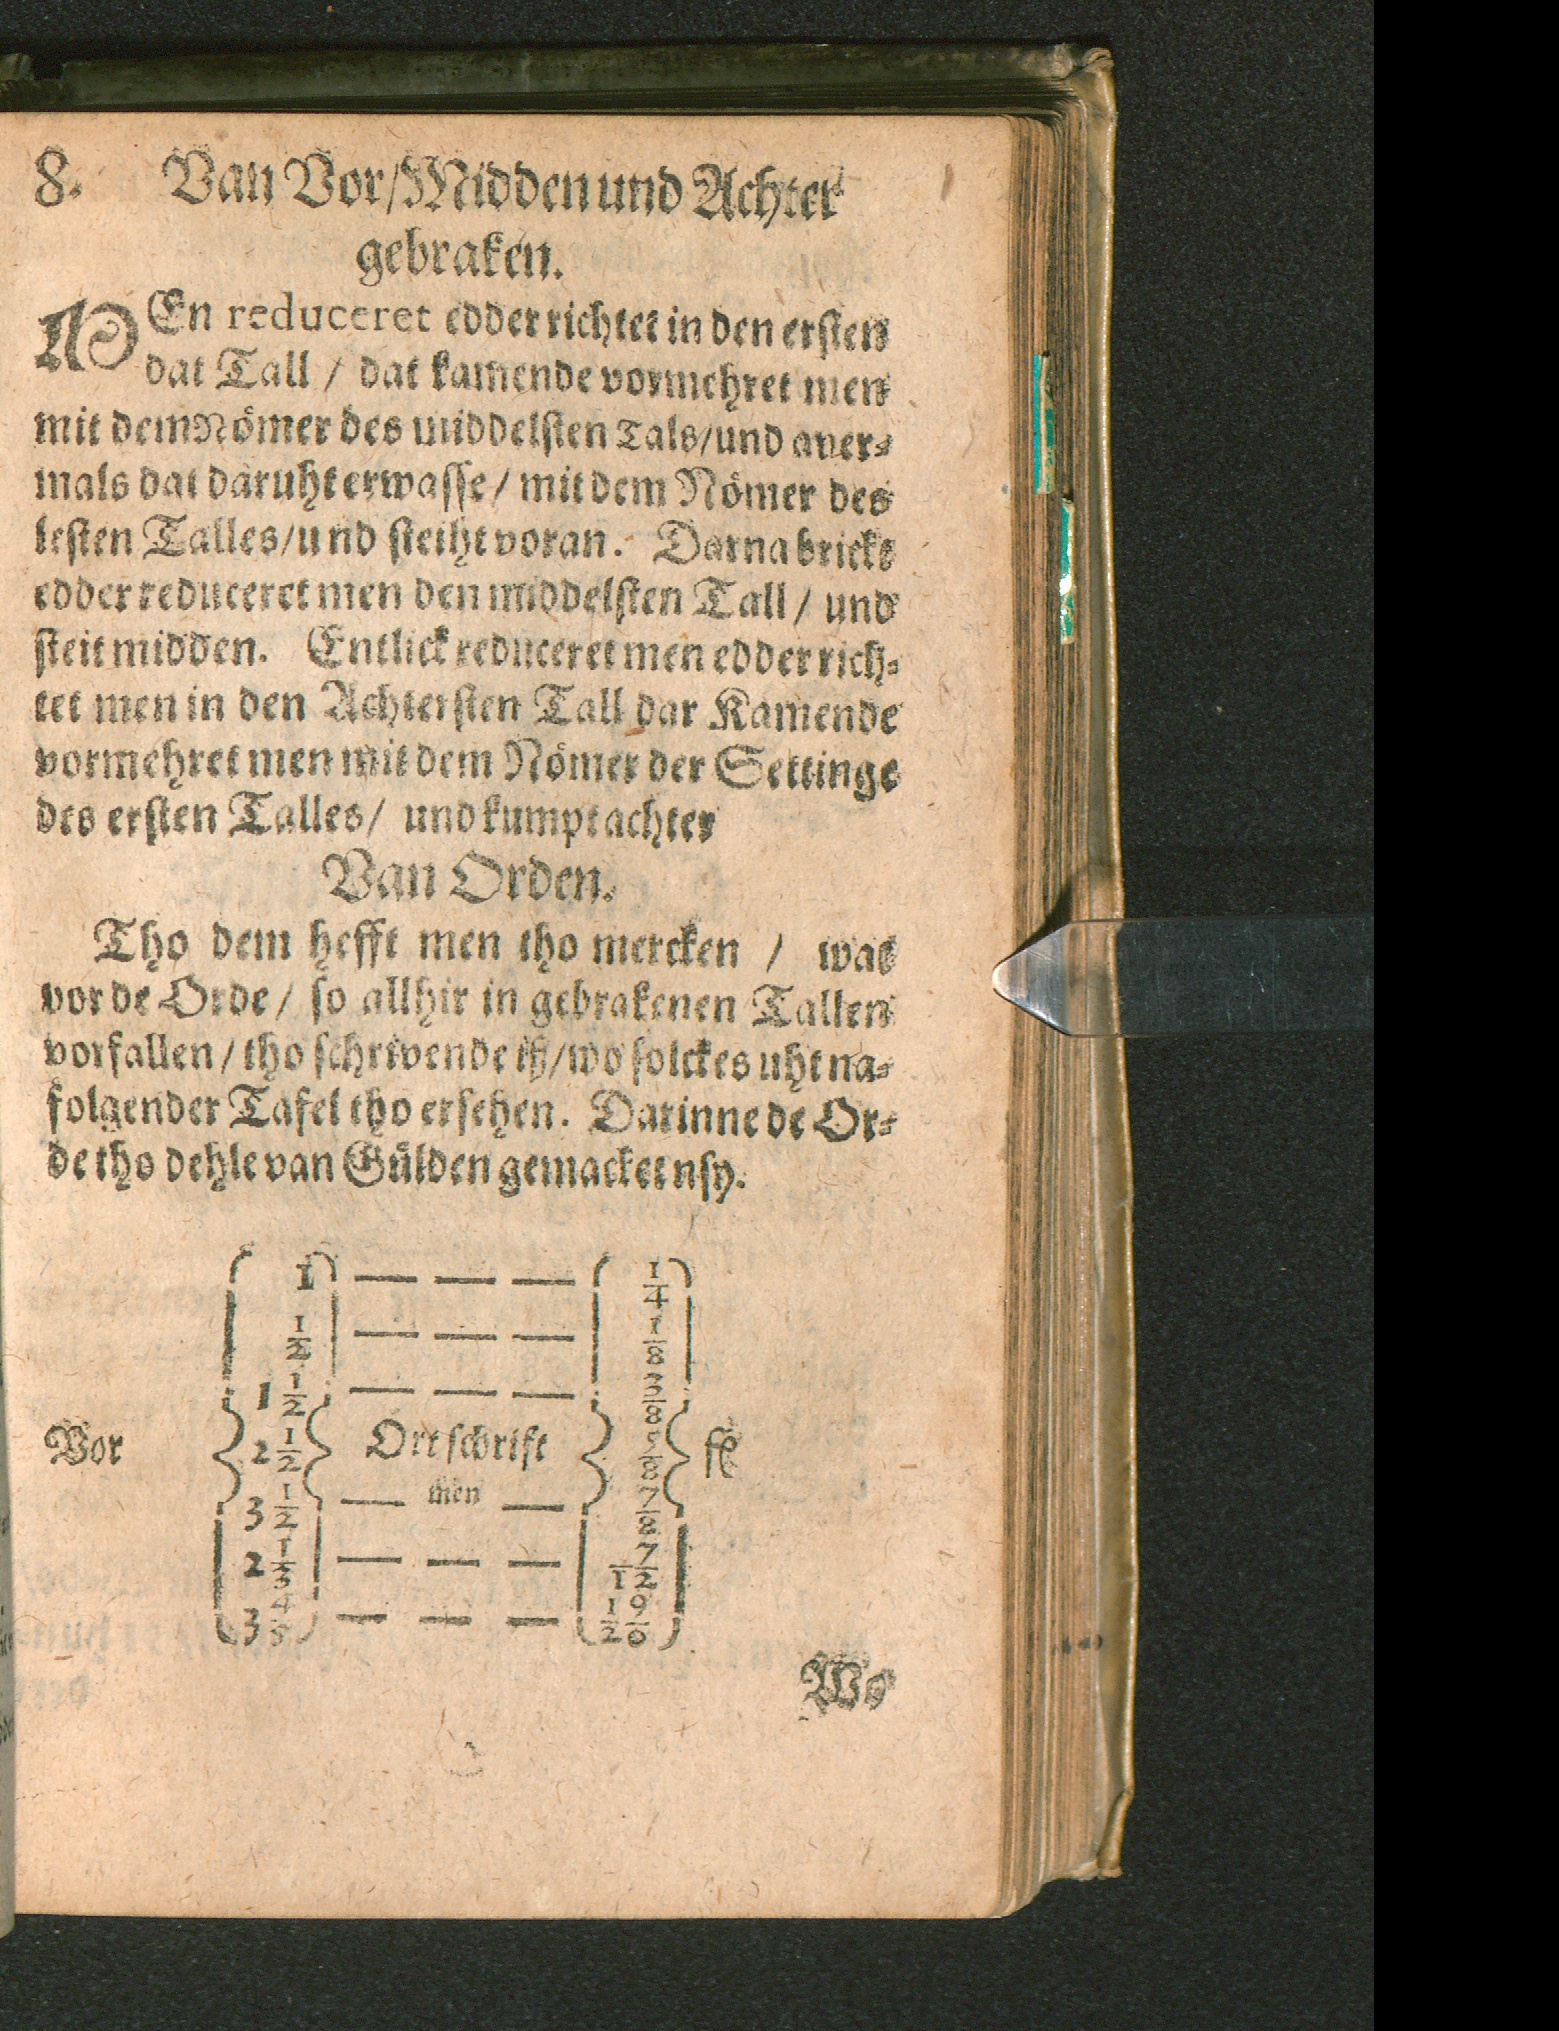 8. Van Vor/Midden und Achter
gebraken.
MEn reduceret edder richtet in den ersten
dat Tall / dat kamende vormehret men
mit dem Nömer des middelsten Tals/und aver-
mals dat daruht erwasse/ mit dem Nömer des
lesten Talles/und steiht voran. Darna brickt
edder reduceret men den middelsten Tall/ und
steit midden. Entlick reduceret men edder rich-
tet men in den Achtersten Tall dar Kamende
vormehret men mit dem Nömer der Settinge
des ersten Talles/ und kumpt achter
Van Orden.
Tho dem hefft men tho mercken / was
vor de Orde/ so allhir in gebrakenen Tallen
vorfallen/ tho schrivende iß/wo solckes uht na-
folgender Tafel tho ersehen. Darinne de Or-
de tho dehle van Gülden gemacket nsy.
1 — — — 1/4
1/2 — — — 1/8
1 1/2 — — — 3/8
Vor 2 1/2 Ort schrift 5/8
3 1/2 — men — 7/8
2 1/3 — — — 7/12
3 4/5 — — — 19/20
Wo